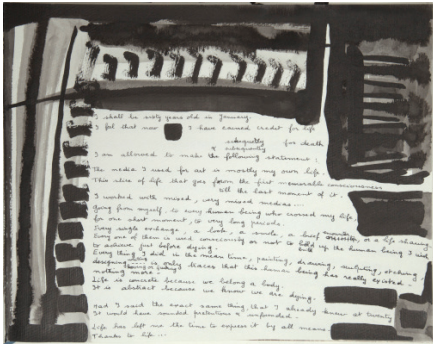 I shall be sixty years old in January.
I fel that now I have earned credit for life
subsequetly for death
& subsequently
I am allowed to make the following statement :
The media I used for art is mostly my own life,
This slice of life that goes from the first memorable consciousness
till the last moment of it.
I worked with mixed, very mixed medias...
Going from myself to every human being who crossed my life,
for one short moment, or very long periods.
Every single exchange, a look, a smile, a brief encounter, or a life sharing,
Every one of them is used consciously or not to build up the human being I wish
to achieve just before dying.
Every thing I did in the mean time, painting, drawing, sculpting, etching,
designing is only traces that this human being has really existed.
nothing more.
Life is concrete because we belong a body.
It is abstract because we know we are dying.
Had I said the exact same thing that I already knew at twenty
It would have sounded pretentious & unfounded.
Life has left me the time to express it by all means
Thanks to life...